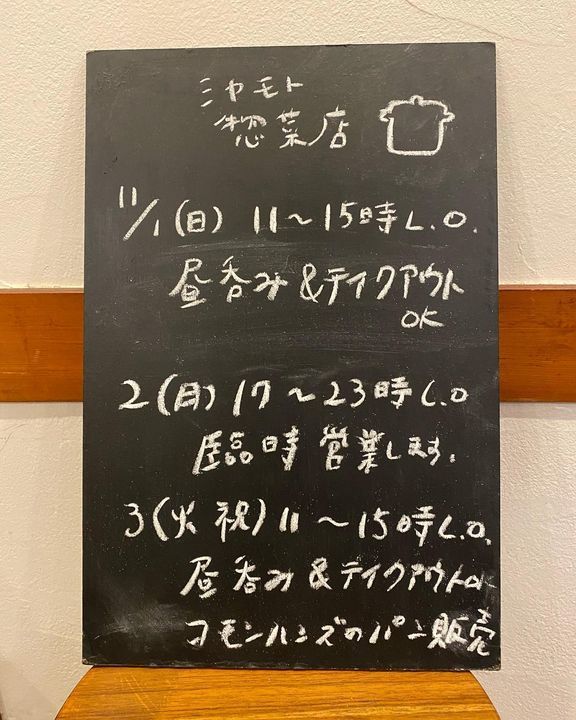 ミヤモト
惣菜店
11/1(日) 11〜15時L.O.
昼呑み&テイクアウト
OK
2(月)17〜23時L.O
臨時営業します.
3(火祝)11〜15時L.O.
昼呑み&テイクアウトOK
コモンハンズのパン販売